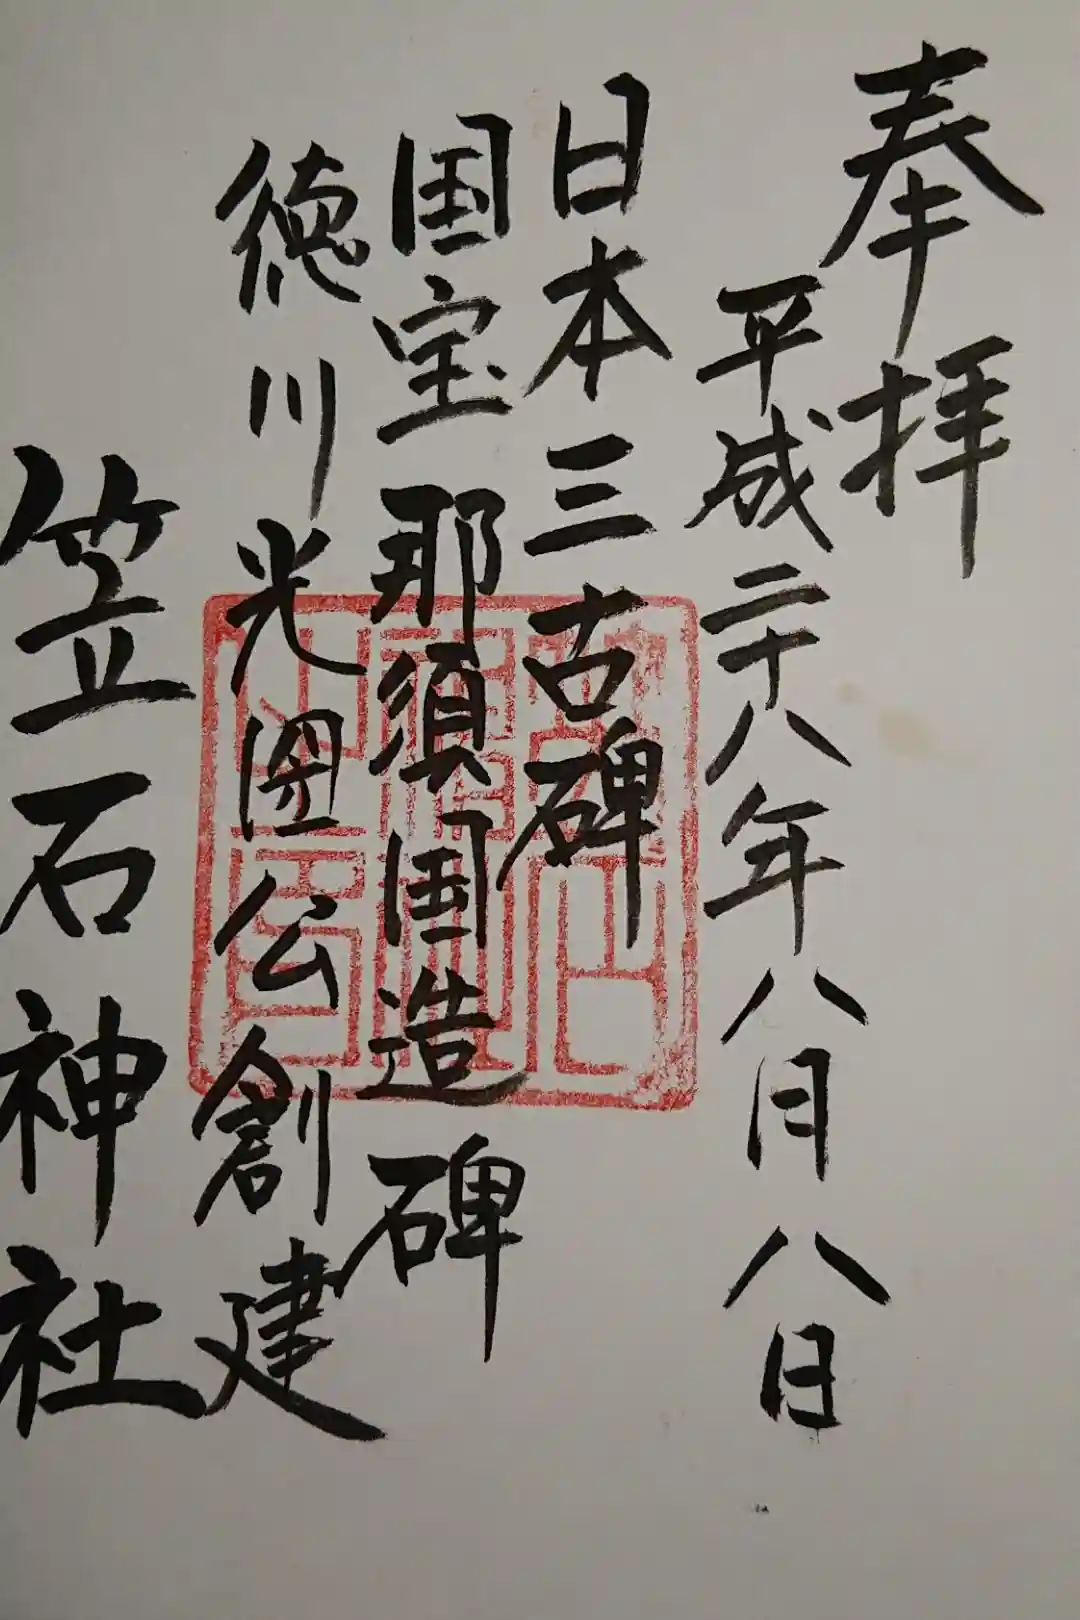 奉拝
平成二十八年八月八日
日本三古碑
国宝那須国造碑
徳川光圀公創建
笠石神社